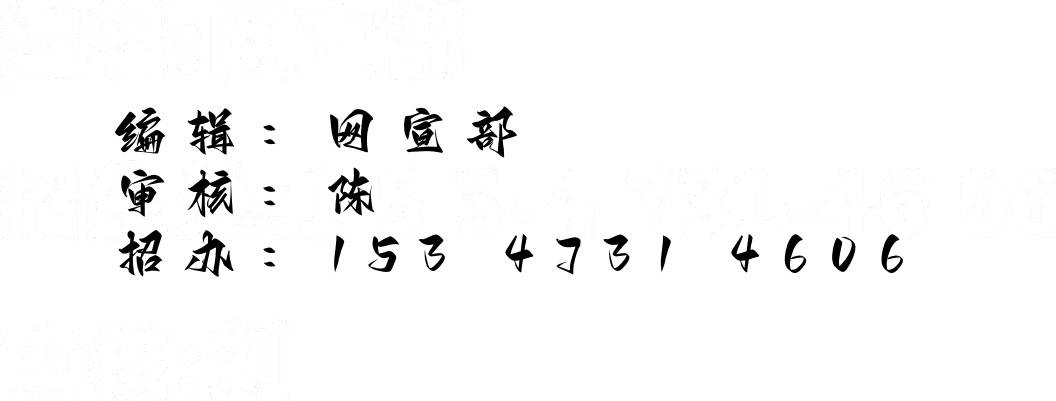 编辑：网宣部
审核：陈
招办：153 4731 4606